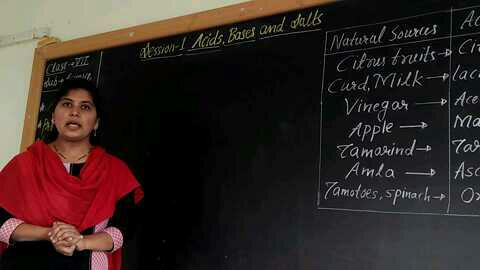 Session-1 Acids, Bases and Salts
Class → VII
Sub →
Natural Sources
Citrus fruits → Ci
Curd, Milk → laci
Vinegar → Ace
Apple → Ma
Tamarind → Tar
Amla → Asc
Tamotoes, spinach →